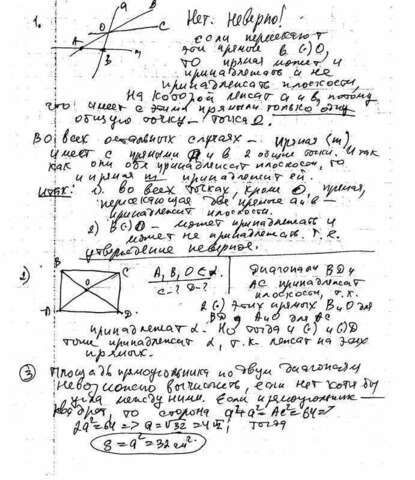 1.
a
B
O
C
A
B
m
Нет. Неверно!
если пересекают
эти прямые в (·)O,
то прямая может и
принадлежать и не
принадлежать плоскости,
на которой лежат a и в, потому
что имеет с этими прямыми только одну
общую точку – точка O.
Во всех остальных случаях – прямая (m)
имеет с прямыми a и в 2 общие точки. И так
как они обе принадлежат плоскости, то
и прямая m принадлежит ей.
Итак: 1. во всех точках, кроме O, прямая,
пересекающая две прямые a и в –
принадлежит плоскости.
2) В(·)O – может принадлежать и
может не принадлежать. Т.е.
утверждение неверное.
2)
B
C
O
A
D
A, B, O ∈ α.
C-? D-?
Диагонали BD и
AC принадлежат
плоскости, т.к.
2(·) этих прямых B и O для
BD и A и O для AC
принадлежат α. Но тогда и (·)C и (·)D
тоже принадлежат α, т.к. лежат на этих
прямых.
3 Площадь прямоугольника по двум диагоналям
невозможно вычислить, если нет хотя бы
угла между ними. Если прямоугольник –
квадрат, то сторона a²+a²=AC²=64 =>
2a²=64 => a=√32=4√2; тогда
S=a²=32 см².